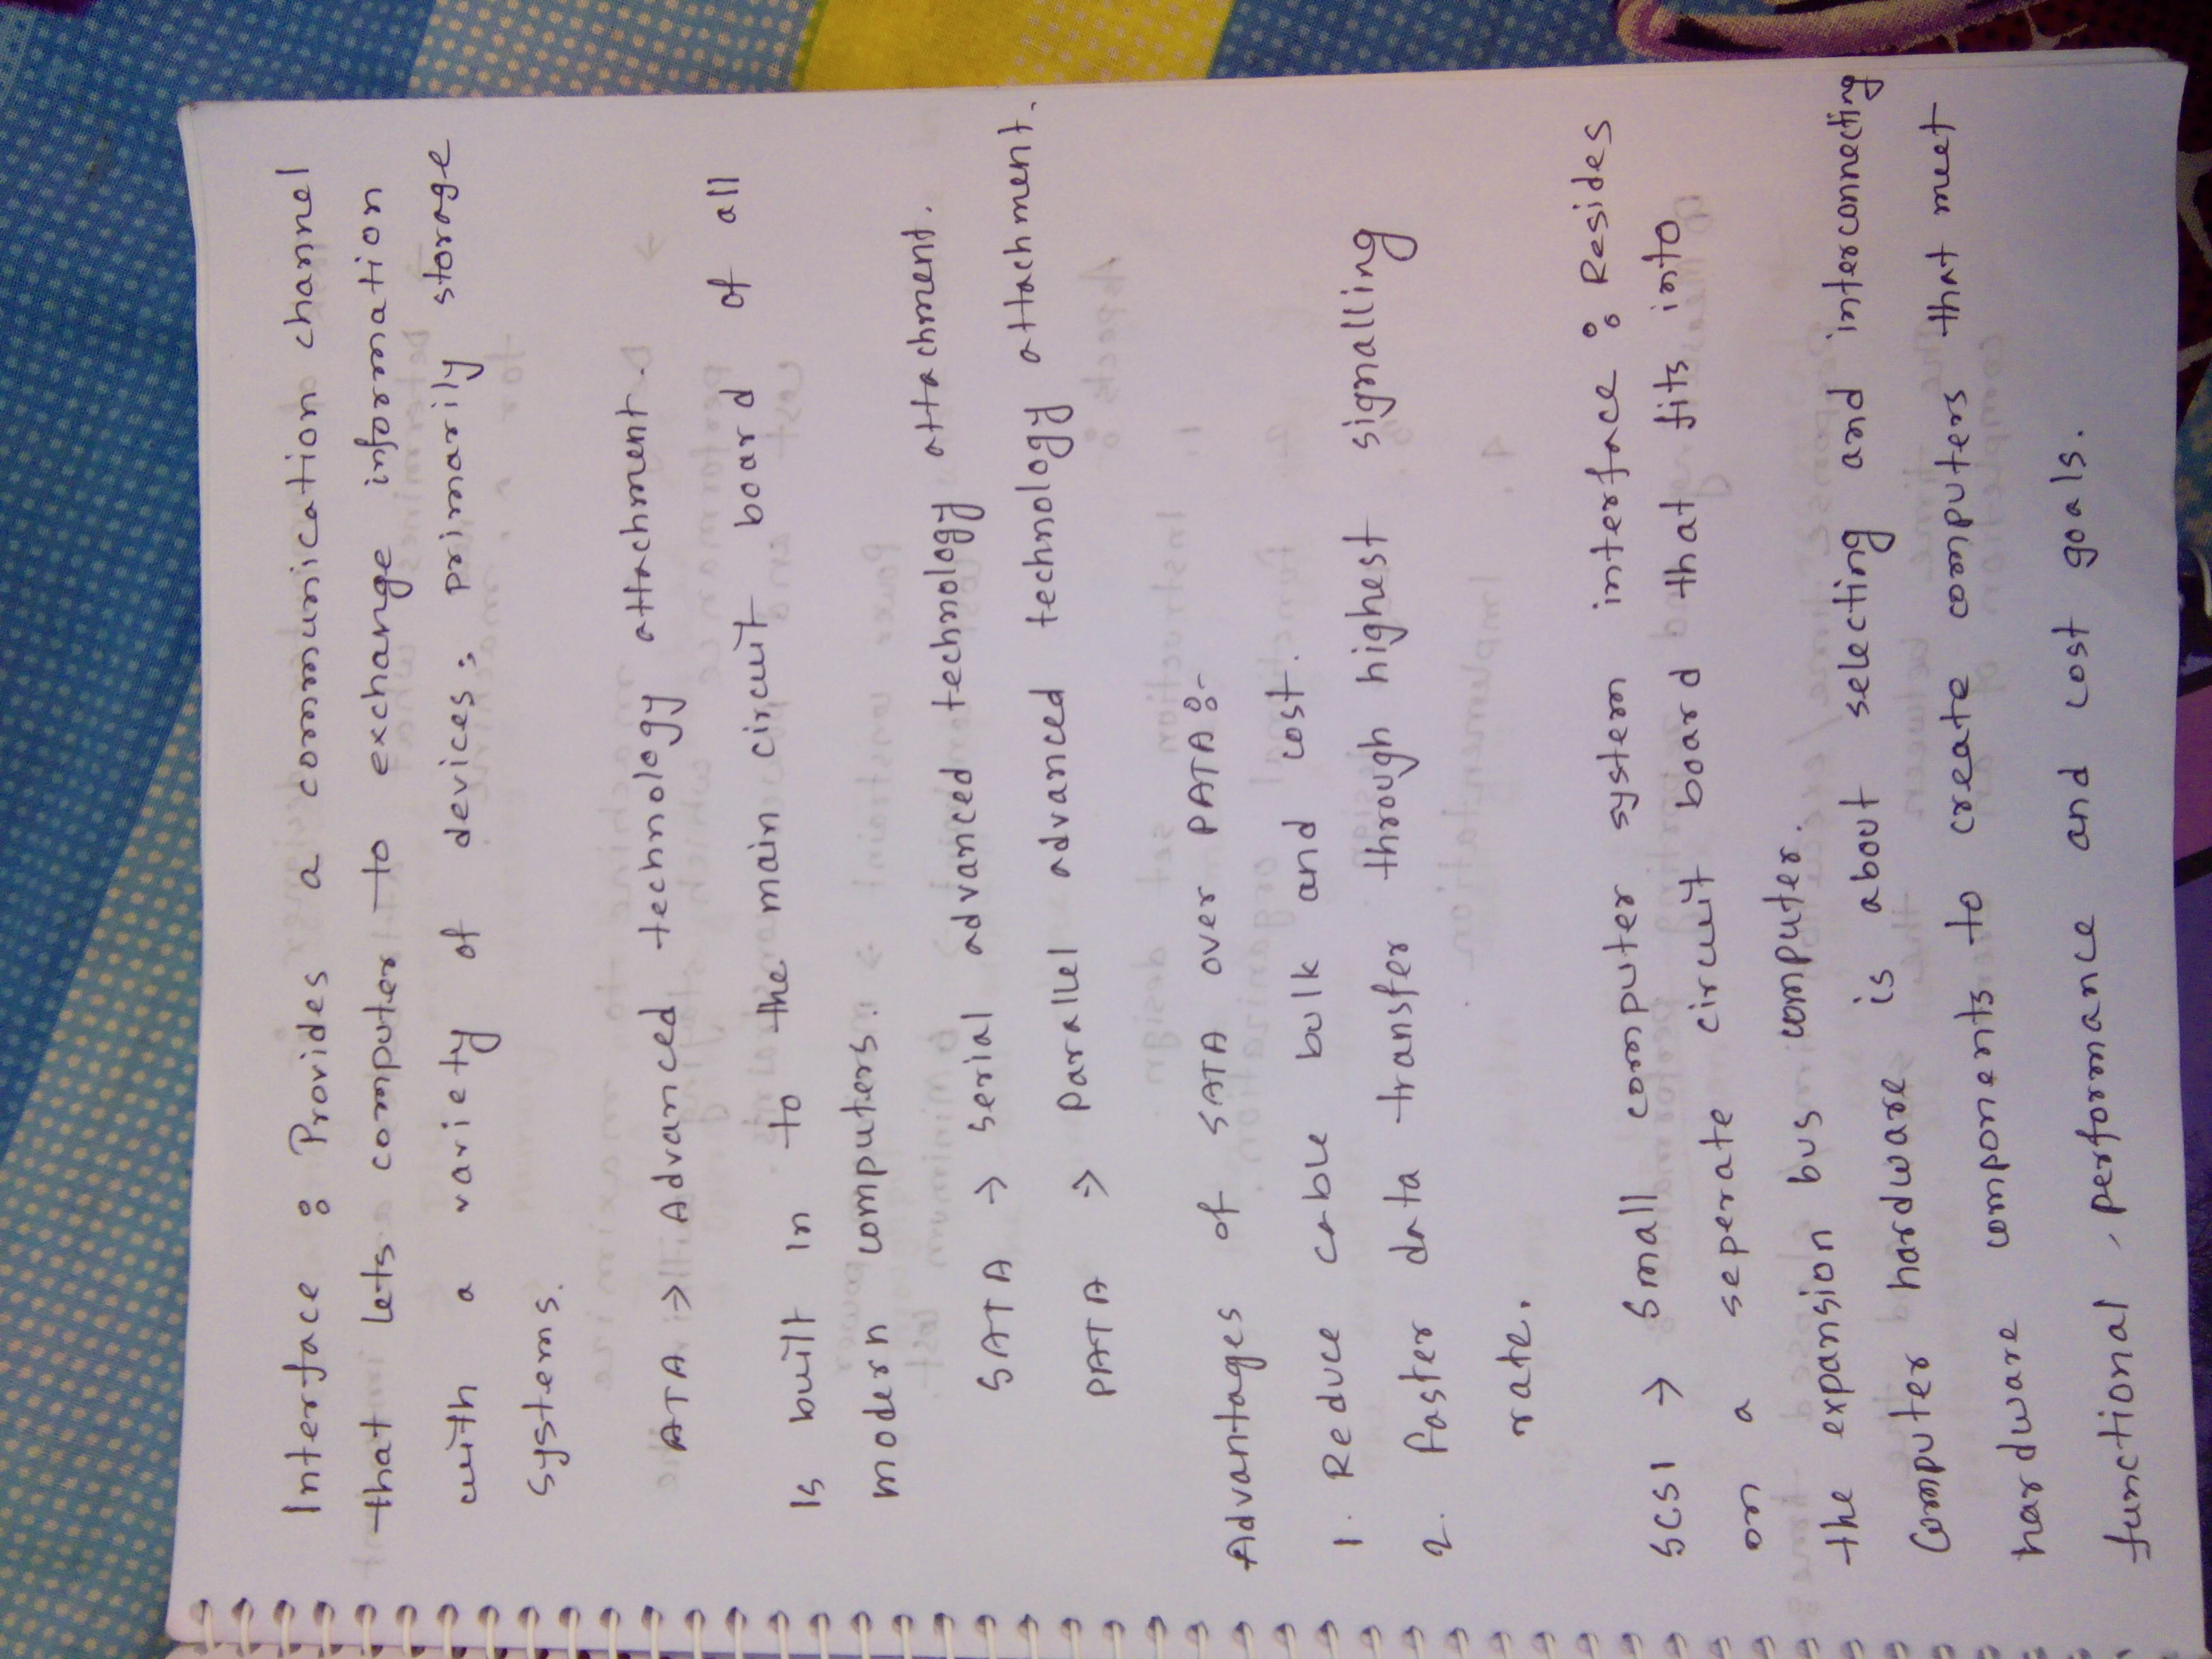 Interface : Provides a communication channel
that lets computer to exchange information
with a variety of devices; primarily storage
systems.
ATA → Advanced technology attachment.
Is built in to the main circuit board of all
modern computers.
SATA → Serial advanced technology attachment.
PATA → Parallel advanced technology attachment.
Advantages of SATA over PATA :-
1. Reduce cable bulk and cost.
2. Faster data transfer through highest signalling
rate.
SCSI → Small computer system interface : Resides
on a seperate circuit board that fits into
the expansion bus computer.
Computer hardware is about selecting and interconnecting
hardware components to create computers that meet
functional, performance and cost goals.